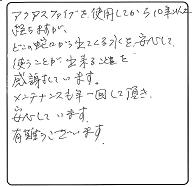 アクアスファイブを使用してから10年以上
経ちますが、
どこの蛇口から出てくる水を安心して
使うことが出来ることを
感謝をしています。
メンテナンスも年一回して頂き
安心しています。
有難うございます。